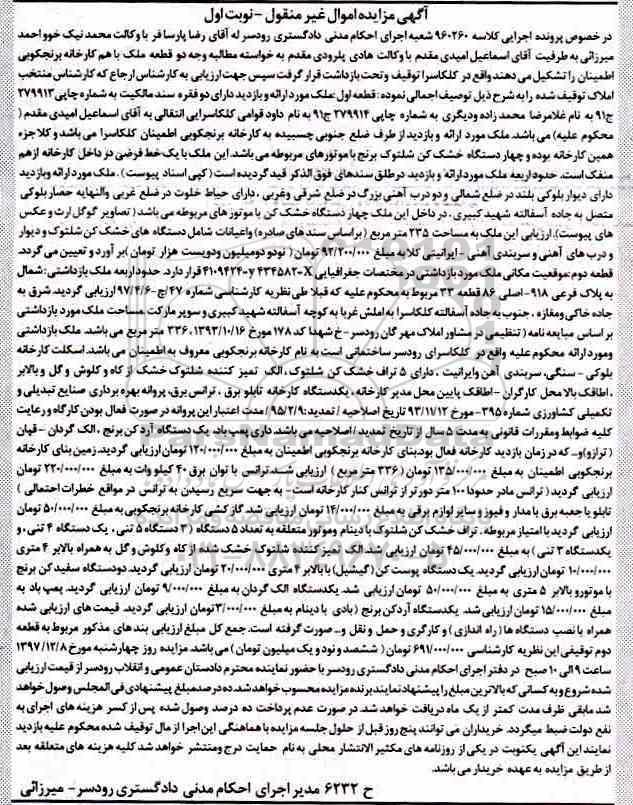 آگهی مزایده اموال غیر منقول -نوبت اول
در خصوص پرونده اجرایی کلاسه ۹۶۰۲۶۰ شعبه اجرای احکام مدنی دادگستری رودسر له آقای رضا پارسا فر با وکالت محمد نیک خوو احمد
میرزائی به طرفیت آقای اسماعیل امیدی مقدم با وکالت هادی پلرودی مقدم به خواسته مطالبه وجه دو قطعه ملک با هم کارخانه برنجکوبی
اطمینان را تشکیل می دهند واقع در کلکاسرا توقیف و تحت بازداشت قرار گرفت سپس جهت ارزیابی به کارشناس ارجاع که کارشناس منتخب
املاک توقیف شده را به شرح ذیل توصیف اجمالی نموده : قطعه اول :ملک مورد ارائه و بازدید دارای دو فقره سند مالکیت به شماره چاپی ۲۷۹۹۱۳
ج۹۱ به نام غلامرضا محمد زاده ودیگری به شماره چاپی ۲۷۹۹۱۴ ج۹۱ به نام داود قوامی کلکاسرایی انتقالی به آقای اسماعیل امیدی مقدم (
محکوم علیه) می باشد. ملک مورد ارائه و بازدید از طرف ضلع جنوبی چسبیده به کارخانه برنجکوبی اطمینان کلکاسرا می باشد و کلا جزء
همین کارخانه بوده و چهار دستگاه خشک کن شلتوک برنج با موتورهای مربوطه می باشد. این ملک با یک خط فرضی در داخل کارخانه از هم
منفک است. حدود اربعه ملک مورد ارائه و بازدید در طلق سندهای فوق الذکر قید گردیده است (کپی اسناد پیوست) . ملک مورد ارائه و بازدید
دارای دیوار بلوکی بلند در ضلع شمالی و دو درب آهنی بزرگ در ضلع شرقی وغربی ، دارای حیاط خلوت در ضلع غربی والنهایه حصار بلوکی
متصل به جاده آسفالته شهید کبیری . در داخل این ملک چهار دستگاه خشک کن با موتور های مربوطه می باشد ( تصاویر گوگل ارت و عکس
های پیوست). ارزیابی این ملک به مساحت ۲۳۵ متر مربع ( بر اساس سند های صادره) واعیانات شامل دستگاه های خشک کن شلتوک و دیوار
و درب های آهنی و سربندی آهنی - ایرانیتی کلا به مبلغ ۹۲/۲۰۰/۰۰۰ تومان ( نود و دومیلیون و دویست هزار تومان )بر آورد و تعیین می گردد.
قطعه دوم :موقعیت مکانی ملک مورد بازداشتی در مختصات جغرافیایی X-۴۳۴۵۸۲ و y-۴۱۰۹۴۲۴ قرار دارد. حدود اربعه ملک بازداشتی : شمال
به پلاک فرعی ۹۱۸-اصلی ۸۶ قطعه ۳۳ مربوط به محکوم علیه که قبلا طی نظریه کارشناسی شماره ۴۷/ج-۹۷/۴/۶ ارزیابی گردید. شرق به
جاده خاکی ومغازه ، جنوب به جاده آسفالته کلکاسرا به املش غربا به کوچه آسفالته شهید کبیری و سوپر مارکت مساحت ملک مورد بازداشتی
بر اساس مبایعه نامه ( تنظیمی در مشاور املاک مهر گان رودسر -خ شهدا کد ۱۷۸ مورخ ۱۳۹۳/۱۰/۱۶ ، ۳۳۶ متر مربع می باشد. ملک بازداشتی
ومورد ارائه محکوم علیه واقع در کلکاسرای رودسر ساختمانی است به نام کارخانه برنجکوبی معروف به اطمینان می باشد. اسکلت کارخانه
بلوکی - سنگی، سربندی آهن وایرانیت ، دارای ۵ تراف خشک کن شلتوک ، الک تمیز کننده شلتوک خشک از کاه و کلوش و گل و بالابر
، اطاقک بالا محل کارگران - اطاقک پایین محل مدیر کارخانه ، یکدستگاه کارخانه تابلو برق ، ترانس برق، پروانه بهره برداری صنایع تبدیلی و
تکمیلی کشاورزی شماره ۳۹۵- مورخ ۹۳/۱۱/۱۲ تاریخ اصلاحیه / تمدید: ۹۵/۲/۹ / مدت اعتبار این پروانه در صورت فعال بودن کارگاه و رعایت
کلیه ضوابط ومقررات قانونی به مدت ۵ سال از تاریخ تمدید / اصلاحیه می باشد. داری پمپ باد، یک دستگاه آرد کن برنج ، الک گردان - قهان
( ترازو)و... که در زمان بازدید کارخانه فعال بود.بنای کارخانه برنجکوبی اطمینان به مبلغ ۱۲۰/۰۰۰/۰۰۰ تومان ارزیابی گردید. زمین بنای کارخانه
برنجکوبی اطمینان به مبلغ ۱۳۵/۰۰۰/۰۰۰ تومان ( ۳۳۶ متر مربع ) ارزیابی شد.ترانس با توان برق ۴۰ کیلو وات به مبلغ ۲۲۰/۰۰۰/۰۰۰ تومان
ارزیابی گردید ( ترانس مادر حدودا ۱۰۰ متر دورتر از ترانس کنار کارخانه است - به جهت سریع رسیدن به ترانس در مواقع خطرات احتمالی )
تابلو یا جعبه برق با مدار و فیوز و سایر لوازم برقی به مبلغ ۱۴/۰۰۰/۰۰۰ تومان ارزیابی شد. گاز کشی کارخانه برنجکوبی به مبلغ ۵۰/۰۰۰/۰۰۰ تومان
ارزیابی گردید با امتیاز مربوطه . تراف خشک کن شلتوک با دینام وموتور متعلقه به تعداد ۵ دستگاه ( ۳ دستگاه ۵ تنی ، یک دستگاه ۴ تنی ، و
یکدستگاه ۳ تنی ) به مبلغ ۴۵/۰۰۰/۰۰۰ تومان ارزیابی شد.الک تمیز کننده شلتوک خشک شده از کاه وکلوش و گل به همراه بالابر ۴ متری
۱۰/۰۰۰/۰۰۰ تومان ارزیابی گردید. یک دستگاه پوست کن ( گیشیل) با بالابر ۴ متری ۲۰/۰۰۰/۰۰۰ تومان ارزیابی گردید. دودستگاه سفید کن برنج
با موتورو بالابر ۵ متری به مبلغ ۵۰/۰۰۰/۰۰۰ تومان ارزیابی گردید. یکدستگاه الک گردان به مبلغ ۹/۰۰۰/۰۰۰ تومان ارزیابی گردید. پمپ باد به
مبلغ ۱۵/۰۰۰/۰۰۰ تومان ارزیابی شد. یکدستگاه آردکن برنج ( بادی با دینام به مبلغ ۳/۰۰۰/۰۰۰تومان ارزیابی گردید. قیمت های ارزیابی شده
همراه با نصب دستگاه ها ( راه اندازی ) و کارگری و حمل و نقل و... صورت گرفته است. جمع کل مبلغ ارزیابی بند های مذکور مربوط به قطعه
دوم توقیفی این نظریه کارشناسی ۶۹۱/۰۰۰/۰۰۰ تومان ( ششصد و نود و یک میلیون تومان ) می باشد. مزایده روز چهارشنبه مورخ ۱۳۹۷/۱۲/۸
ساعت ۹ الی ۱۰ صبح در دفتر اجرای احکام مدنی دادگستری رودسر با حضور نماینده محترم دادستان عمومی و انقلاب رودسر از قیمت ارزیابی
شده شروع و به کسانی که بالاترین مبلغ را پیشنهاد نمایند برنده مزایده محسوب خواهد شد. ده درصد مبلغ پیشنهادی فی المجلس وصول خواهد
شد مابقی ظرف مدت کمتر از یک ماه دریافت خواهد شد. در صورت عدم پرداخت ده درصد وصول شده پس از کسر هزینه های اجرای به
نفع دولت ضبط میگردد. خریداران می توانند پنج روز قبل از حلول جلسه مزایده با هماهنگی این اجرا از مال توقیف شده محکوم علیه بازدید
نمایند این آگهی یکنوبت در یکی از روزنامه های مکثیر الانتشار محلی به نام حمایت درج ومنتشر خواهد شد کلیه هزینه های متعلقه بعد
از طریق مزایده به عهده خریدار می باشد.
ح ۶۲۳۲ مدیر اجرای احکام مدنی دادگستری رودسر- میرزائی